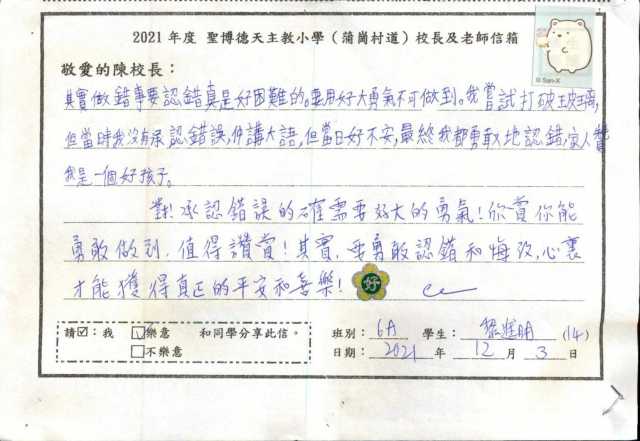 2021 年度 聖博德天主教小學（蒲崗村道）校長及老師信箱
© San-X
敬愛的陳校長：
其實做錯事要認錯真是好困難的。要用好大勇氣不可做到。我嘗試打破玻璃，
但當時我沒有承認錯誤，併講大語，但當日好不安，最終我都勇敢地認錯，家人讚
我是一個好孩子。
對！承認錯誤的確需要好大的勇氣！欣賞你能
勇敢做到，值得讚賞！其實，要勇敢認錯和悔改，心裏
才能獲得真正的平安和喜樂！ 好
請☑：我 ☑樂意 和同學分享此信。 班別： 6A 學生： (14)
□不樂意 日期： 2021 年 12 月 3 日